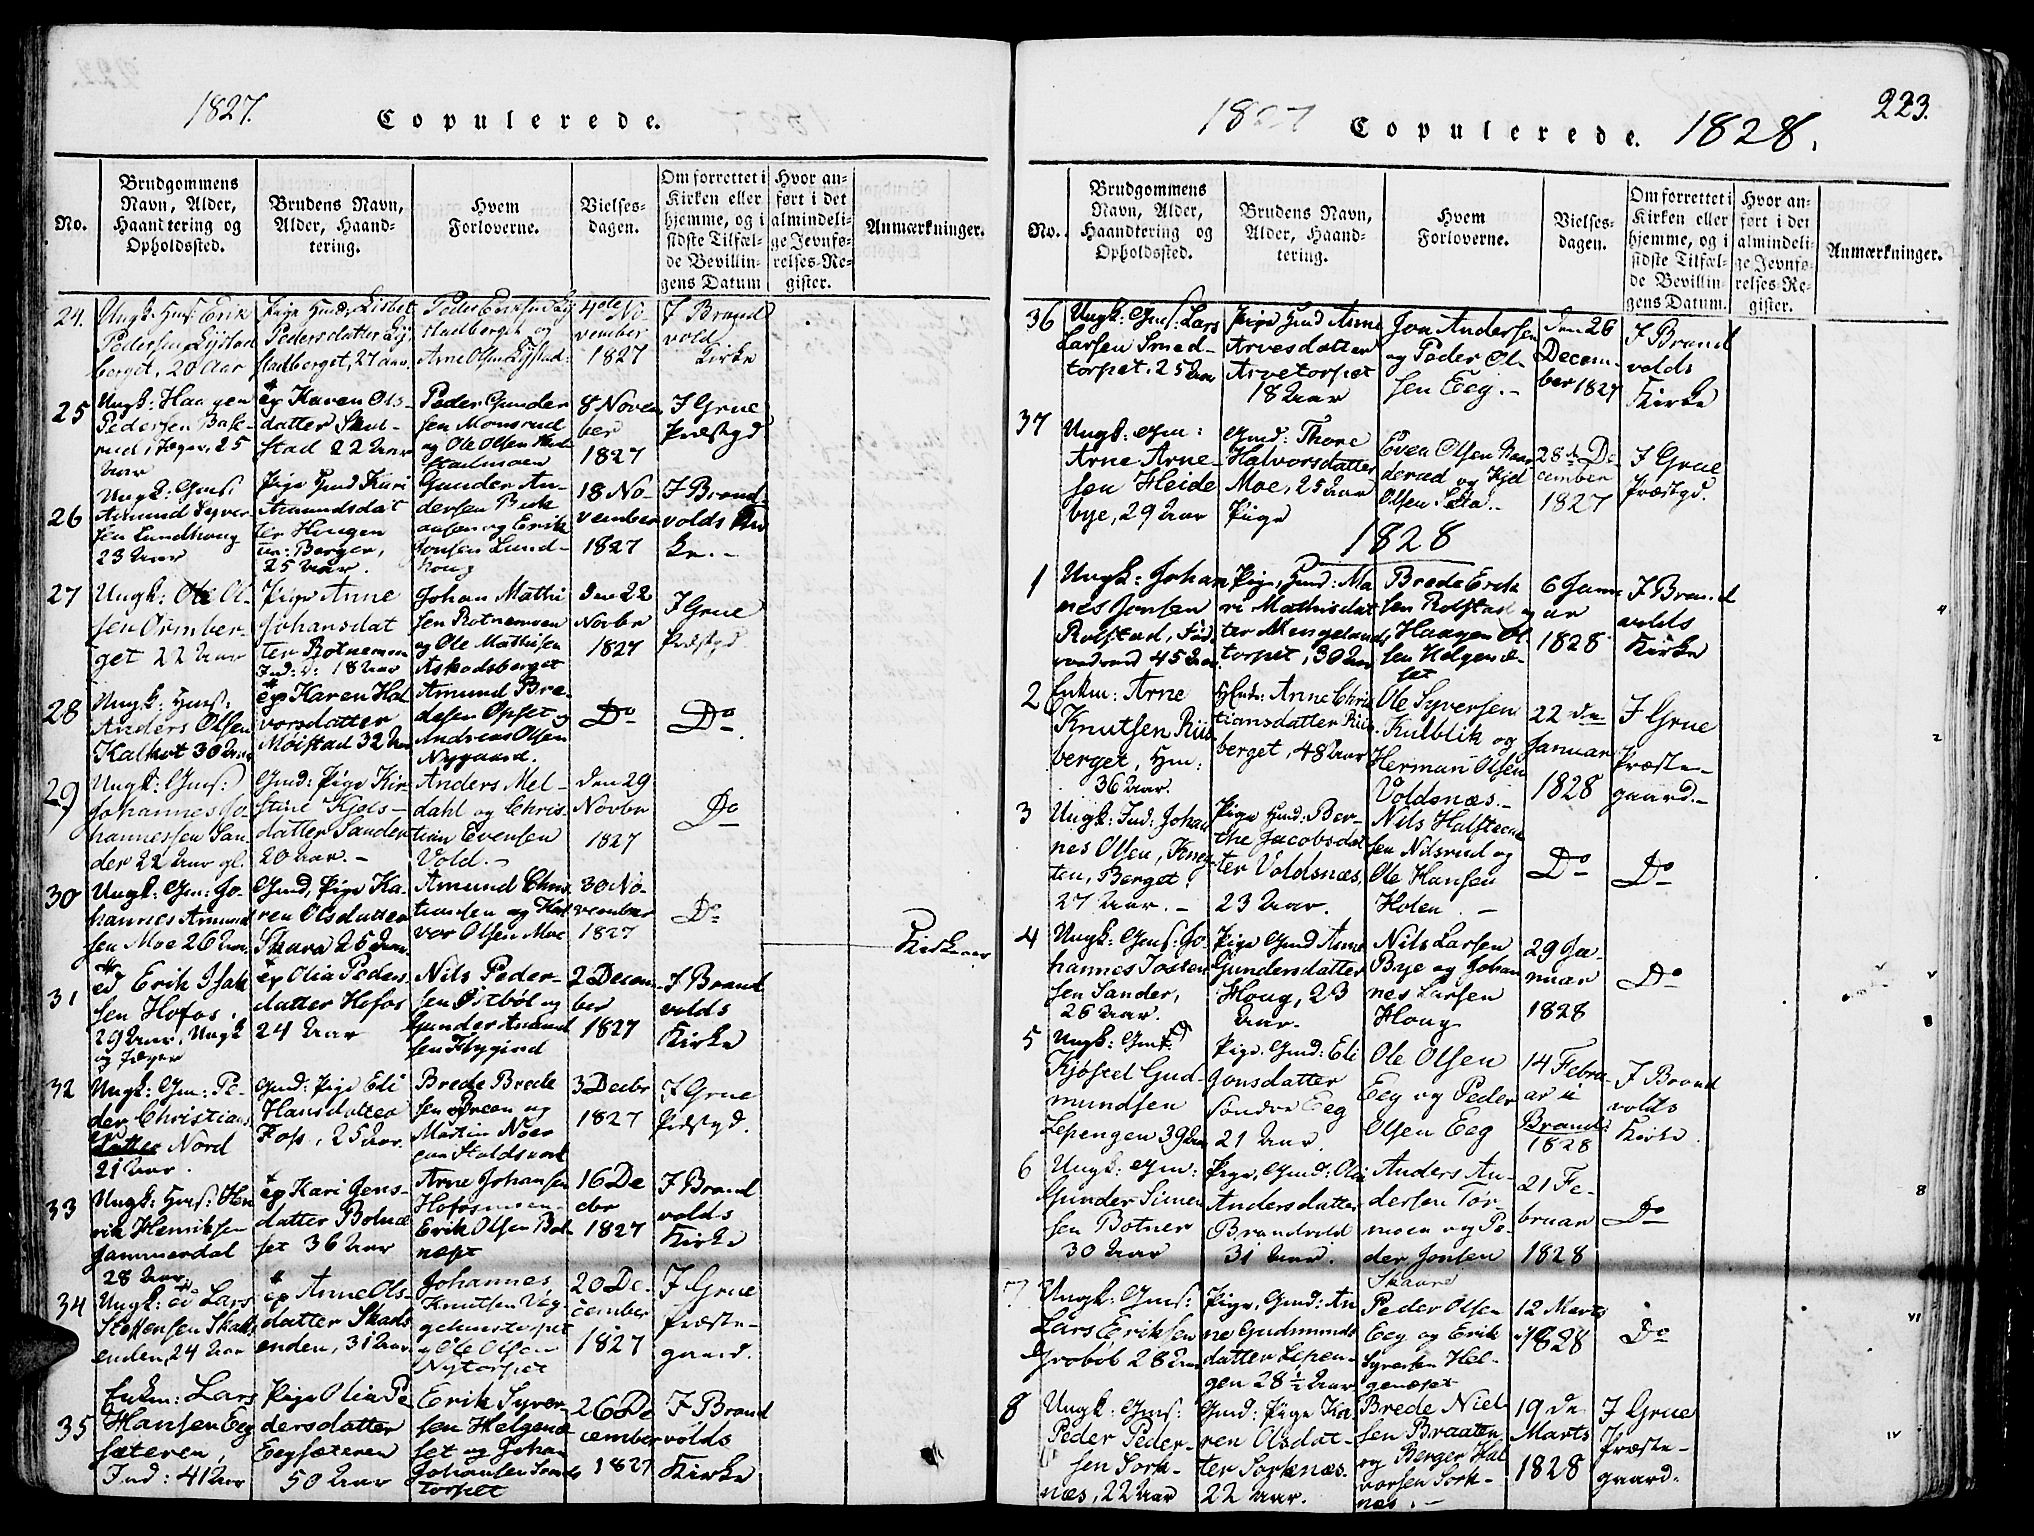 1827.
Copulerede.
No.
Brudgommens
Navn, Alder,
Haandtering og
Opholdssted.
Brudens Navn,
Alder, Haand-
tering.
Hvem
Forloverne.
Vielses-
dagen.
Om forrettet i
Kirken eller
hjemme, og i
sidste Tilfæl-
de Bevillin-
gens Datum
Hvor an-
ført i det
almindeli-
ge Jevnfø-
relses-Re-
gister.
Anmærkninger.
24.
Ungk: Hus: Erik
Pedersen
berget, 20 Aar
Pige Hud: Lisbet
Pedersdatter
stadberget, 27 Aar
Peder
stadberget og
Arne Olsen
4de No-
vember
1827
I Brand
vold
Kirke
25
Ungk: Haagen
Pedersen Base-
rud, Jæger, 25
Aar
ep Karen Ols-
datter Skul-
stad 22 Aar
Peder Gunder
sen Monsrud
og Ole Olsen Skul
stadmoen
8 Novem
ber
1827
I Grue
Præstgd
26
Ungk: Gms:
Amund Syver
sen Lundhoug
23 Aar
Pige Gmd Kari
Amundsdat
ter Hingen
Berger,
25 Aar.
Gunder An-
dersen
og Erik
Jonsen Lund-
houg
18 No-
vember
1827
I Brand-
volds Kir
ke.-
27
Ungk: Ole Ol-
sen Ormber-
get 22 Aar
Pige Anne
Johansdat
ter Rotnemoen
Ind: d: 18 Aar
Johan Mathi
sen Rotnemoen
og Ole Mathisen
Askodsberget
Den 22
Novbr
1827
I Grue
Præstgd.
28
Ungk: Hus:
Anders Olsen
Kalnot 30 Aar
ep Karen Hal
vorsdatter
Moistad 32 Aar
Amund Bre-
desen Opset og
Andreas Olsen
Nygaard.
Do
Do
29
Ungk: Gms:
Johannes Jo-
hannessen San-
der 22 Aar gl.
Gmd: Pige Kir-
stine Kjels-
datter Sander
20 Aar.-
Anders Mel-
dahl og Chris-
tian Evensen
Vold.-
Den 29
Novbr
1827
Do
30
Ungk: Gm: Jo-
hannes Amund
sen Moe 26 Aar
Gmd, Pige Ka-
ren Olsdatter
Skara 25 Aar
Amund Chris
tiansen og Hal
vor Olsen Moe
30 No-
vember
1827
Do
Kirkener
31
Erik Isak
sen Hofos.
29 Aar, Ungk
og Jæger
ep Olia Peders
datter Hofos
24 Aar
Nils Peder-
sen Østbøl og
Gunder Amund
sen Flygind
2 Decem
ber
1827
I Brand
volds
Kirke
32
Ungk: Gm: Pe-
der Christians
datter Nord
21 Aar.
Gmd: Pige Eli
Hansdatter
Foss, 25 Aar.
Brede Brede
sen Breen og
Martin Noer
paa Holdsvert
3 Decbr
1827
I Grue
Præstgd.
33
Ungk: Hus: Hen
rik Henriksen
Jammerdal
28 Aar.
ep Kari Jens-
datter Botnæ
set 36 Aar
Arne Johansen
Hofosmoen
Erik Olsen Bot
næset
16 De
cbr
1827
I Brand
volds
Kirke
34
Ungk: Lars
Stoffensen Skads
enden, 24 Aar
ep Anne Ols-
datter Skads
enden, 31 Aar
Johannes
Knutsen Væg-
gelmstorpet
og Ole Olsen
Nytorpet
20 De-
cember
1827
I Grue
Præste-
gaard.
35
Enkm: Lars
Hansen Eeg
sæteren,
Ind: 41 Aar
Pige Olia Pe
dersdatter
Eegsæteren
50 Aar
Erik Syver
sen Helgenæ
set og Johan
Johansen Smed
torpet
26 De
cember
1827
I Brand
volds
Kirke
1827
Copulerede.
1828.
223.
No.
Brudgommens
Navn, Alder,
Haandtering og
Opholdssted.
Brudens Navn,
Alder, Haand-
tering.
Hvem
Forloverne.
Vielses-
dagen.
Om forrettet i
Kirken eller
hjemme, og i
sidste Tilfæl-
de Bevillin-
gens Datum.
Hvor an-
ført i det
almindeli-
ge Jevnfø-
relses-Re-
gister.
Anmærkninger.
36
Ungk: Gms: Lars
Larsen Smed-
torpet, 25 Aar
Pige Hmd Anne
Arvesdatter
Arvetorpet
18 Aar
Jon Andersen
og Peder Ol-
sen Eeg.-
Den 26
Decem-
ber 1827
I Brand
volds
Kirke
37
Ungk: Gm:
Arne Arne-
sen Heide
bye, 29 Aar
Gmd: Thore
Halvorsdatter
Moe, 25 Aar
Pige
Even Olsen Naar
derud og Kjel
Olsen Sæta.-
28 de De
cember
1827
I Grue
Præstgd.
1828
1
Ungk: Johan
nes Jonsen
Rolstad, Ind
45 Aar
Pige, Hmd: Ma
ri Mathisdat
ter Mengelands
torpet, 30 Aar
Brede Erik
sen Rolstad og
Haagen Ol-
sen Helgenæ-
set
6 Janu
ar
1828
I Brand
volds
Kirke
2
Enkm: Arne
Knutsen Riis
berget, Hm:
36 Aar.
Hmd: Anne Chris
tiansdatter Riis
berget, 48 Aar
Ole Syversen
Kulblik og
Herman Olsen
Voldsnæs.-
22 de
Januar
1828
I Grue
Præste-
gaard.-
3
Ungk: Ind: Johan
nes Olsen, Kneg-
ten, Berget,
27 Aar.-
Pige Hmd: Ber-
the Jacobsdat
ter Voldsnæs,
23 Aar.
Nils Halsteen
sen Nilsrud og
Ole Hansen
Holen.-
Do
Do
4
Ungk: Gms: Jo
hannes Josten
sen Sander,
26 Aar.
Pige Gmd Anne
Gundersdatter
Houg, 23
Aar.
Nils Larsen
Bye og Johan
nes Larsen
Houg
29 Ja-
nuar
1828
Do
5
Ungk: Gms
Kjøstel Gud-
mundsen
Lepengen 39 Aar
Pige, Gmd: Eli
Jonsdatter
søndre Eeg
21 Aar
Ole Olsen
Eeg og Peder
Olsen Eeg
14 Febru-
ar i
Brand:
1828
I Brand
volds
Kirke
6
Ungk: Gm:
Gunder Simen
sen Botner
30 Aar
Pige, Gmd: Olia
Andersdatter
Brandvold
31 Aar.
Anders An-
dersen Tor-
moen og Pe-
der Jonsen
Skaare
21 Fe-
bruar
1828
Do
7
Ungk: Gms:
Lars Eriksen
Grobøl 28 Aar
Pige, Gmd: An
ne Gudmunds
datter Lepen-
gen 28 ½ Aar
Peder Olsen
Eeg og Erik
Syversen Hel-
genæset
12 Marts
1828
Do
8
Ungk: Gms:
Peder Peder-
sen Sork-
næs, 22 Aar
Gmd: Pige Ka-
ren Olsdat-
ter Sorknæs.
22 Aar.
Brede Niel
sen Braaten
og Berger Hal
vorsen Sork-
næs.-
19 de
Marts
1828
I Grue
Præste-
gaard.